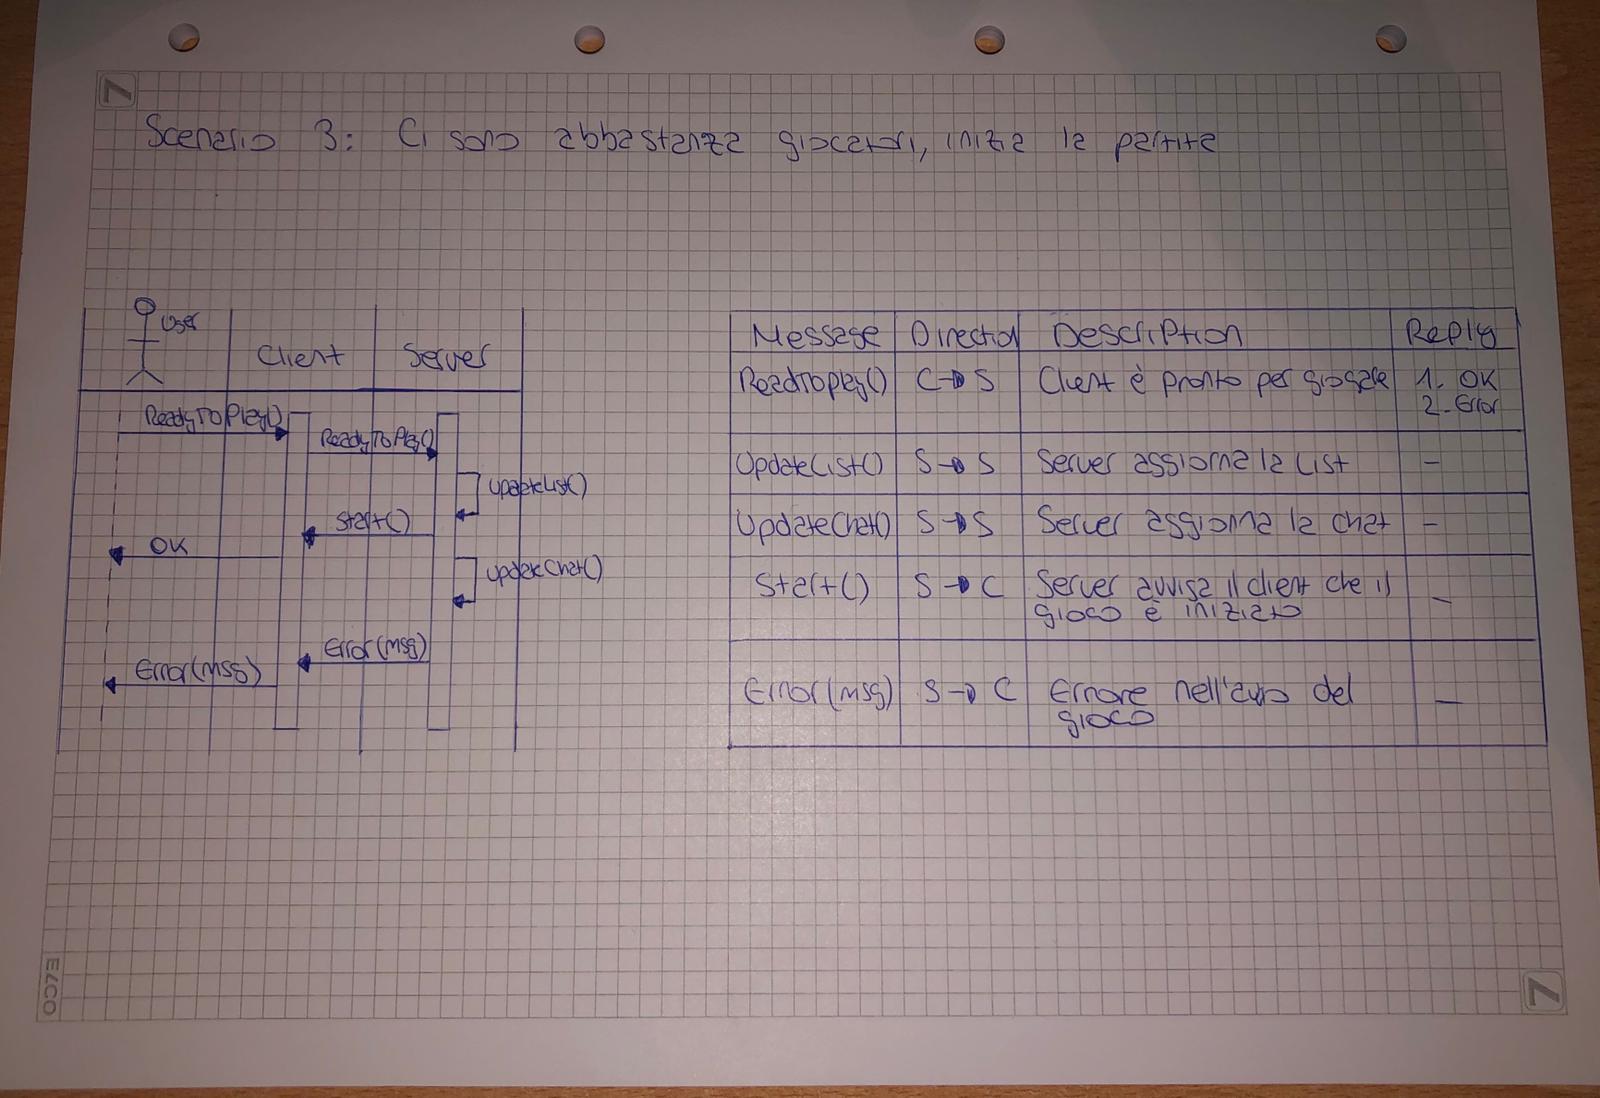 7
Scenario 3: Ci sono abbastanza giocatori, inizia la partita
User
Client
Server
ReadyToPlay()
ReadyToPlay()
UpdateList()
Start()
OK
UpdateChat()
Error(msg)
Error(msg)
Message Direction Description Reply
ReadToPlay() C→S Client è pronto per giocare 1. OK
2. Error
UpdateList() S→S Server aggiorna la List -
UpdateChat() S→S Server aggiorna la chat -
Start() S→C Server avvisa il client che il
gioco è iniziato -
Error(msg) S→C Errore nell'avvio del
gioco -
7